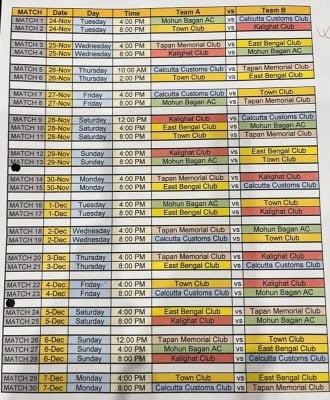 MATCH Date Day Time Team A Team B
MATCH 1 24-Nov Tuesday 4:00 PM Mohun Bagan AC vs Calcutta Customs Club
MATCH 2 24-Nov Tuesday 8:00 PM Town Club vs Kalighat Club
MATCH 3 25-Nov Wednesday 4:00 PM Tapan Memorial Club vs East Bengal Club
MATCH 4 25-Nov Wednesday 8:00 PM Kalighat Club vs Mohun Bagan AC
MATCH 5 26-Nov Thursday 10:00 AM Calcutta Customs Club vs Tapan Memorial Club
MATCH 6 26-Nov Thursday 2:00 PM Town Club vs East Bengal Club
MATCH 7 27-Nov Friday 4:00 PM Calcutta Customs Club vs Town Club
MATCH 8 27-Nov Friday 8:00 PM Mohun Bagan AC vs Tapan Memorial Club
MATCH 9 28-Nov Saturday 12:00 PM Kalighat Club vs Calcutta Customs Club
MATCH 10 28-Nov Saturday 4:00 PM East Bengal Club vs Mohun Bagan AC
MATCH 11 28-Nov Saturday 8:00 PM Town Club vs Tapan Memorial Club
MATCH 12 29-Nov Sunday 4:00 PM Kalighat Club vs East Bengal Club
MATCH 13 29-Nov Sunday 8:00 PM Mohun Bagan AC vs Town Club
MATCH 14 30-Nov Monday 4:00 PM Tapan Memorial Club vs Kalighat Club
MATCH 15 30-Nov Monday 8:00 PM East Bengal Club vs Calcutta Customs Club
MATCH 16 1-Dec Tuesday 4:00 PM Mohun Bagan AC vs Calcutta Customs Club
MATCH 17 1-Dec Tuesday 8:00 PM East Bengal Club vs Kalighat Club
MATCH 18 2-Dec Wednesday 4:00 PM Tapan Memorial Club vs Mohun Bagan AC
MATCH 19 2-Dec Wednesday 8:00 PM Calcutta Customs Club vs Town Club
MATCH 20 3-Dec Thursday 4:00 PM Tapan Memorial Club vs Kalighat Club
MATCH 21 3-Dec Thursday 8:00 PM East Bengal Club vs Calcutta Customs Club
MATCH 22 4-Dec Friday 4:00 PM Town Club vs Kalighat Club
MATCH 23 4-Dec Friday 8:00 PM Calcutta Customs Club vs Mohun Bagan AC
MATCH 24 5-Dec Saturday 4:00 PM East Bengal Club vs Tapan Memorial Club
MATCH 25 5-Dec Saturday 8:00 PM Kalighat Club vs Mohun Bagan AC
MATCH 26 6-Dec Sunday 12:00 PM Tapan Memorial Club vs Town Club
MATCH 27 6-Dec Sunday 4:00 PM Mohun Bagan AC vs East Bengal Club
MATCH 28 6-Dec Sunday 8:00 PM Kalighat Club vs Calcutta Customs Club
MATCH 29 7-Dec Monday 4:00 PM Town Club vs East Bengal Club
MATCH 30 7-Dec Monday 8:00 PM Tapan Memorial Club vs Calcutta Customs Club